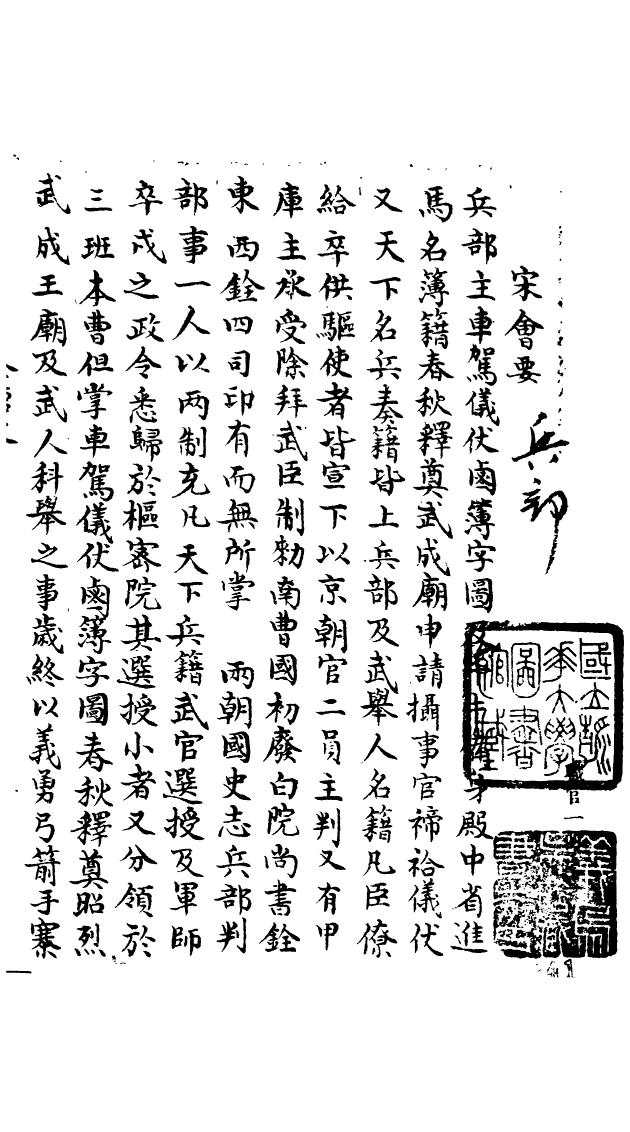 職官一
宋會要 兵部
兵部主車駕儀仗鹵簿字圖及身殿中省進
馬名簿籍春秋釋奠武成廟申請攝事官禘祫儀仗
又天下名兵奏籍皆上兵部及武舉人名籍凡臣僚
給卒供驅使者皆宣下以京朝官二員主判又有甲
庫主承受除拜武臣制勑南曹國初廢白院尚書銓
東西銓四司印有而無所掌 兩朝國史志兵部判
部事一人以两制充凡天下兵籍武官選授及軍師
卒戍之政令悉歸於樞密院其選授小者又分領於
三班本曹但掌車駕儀仗鹵簿字圖春秋釋奠昭烈
武成王廟及武人科舉之事歲終以義勇弓箭手寨